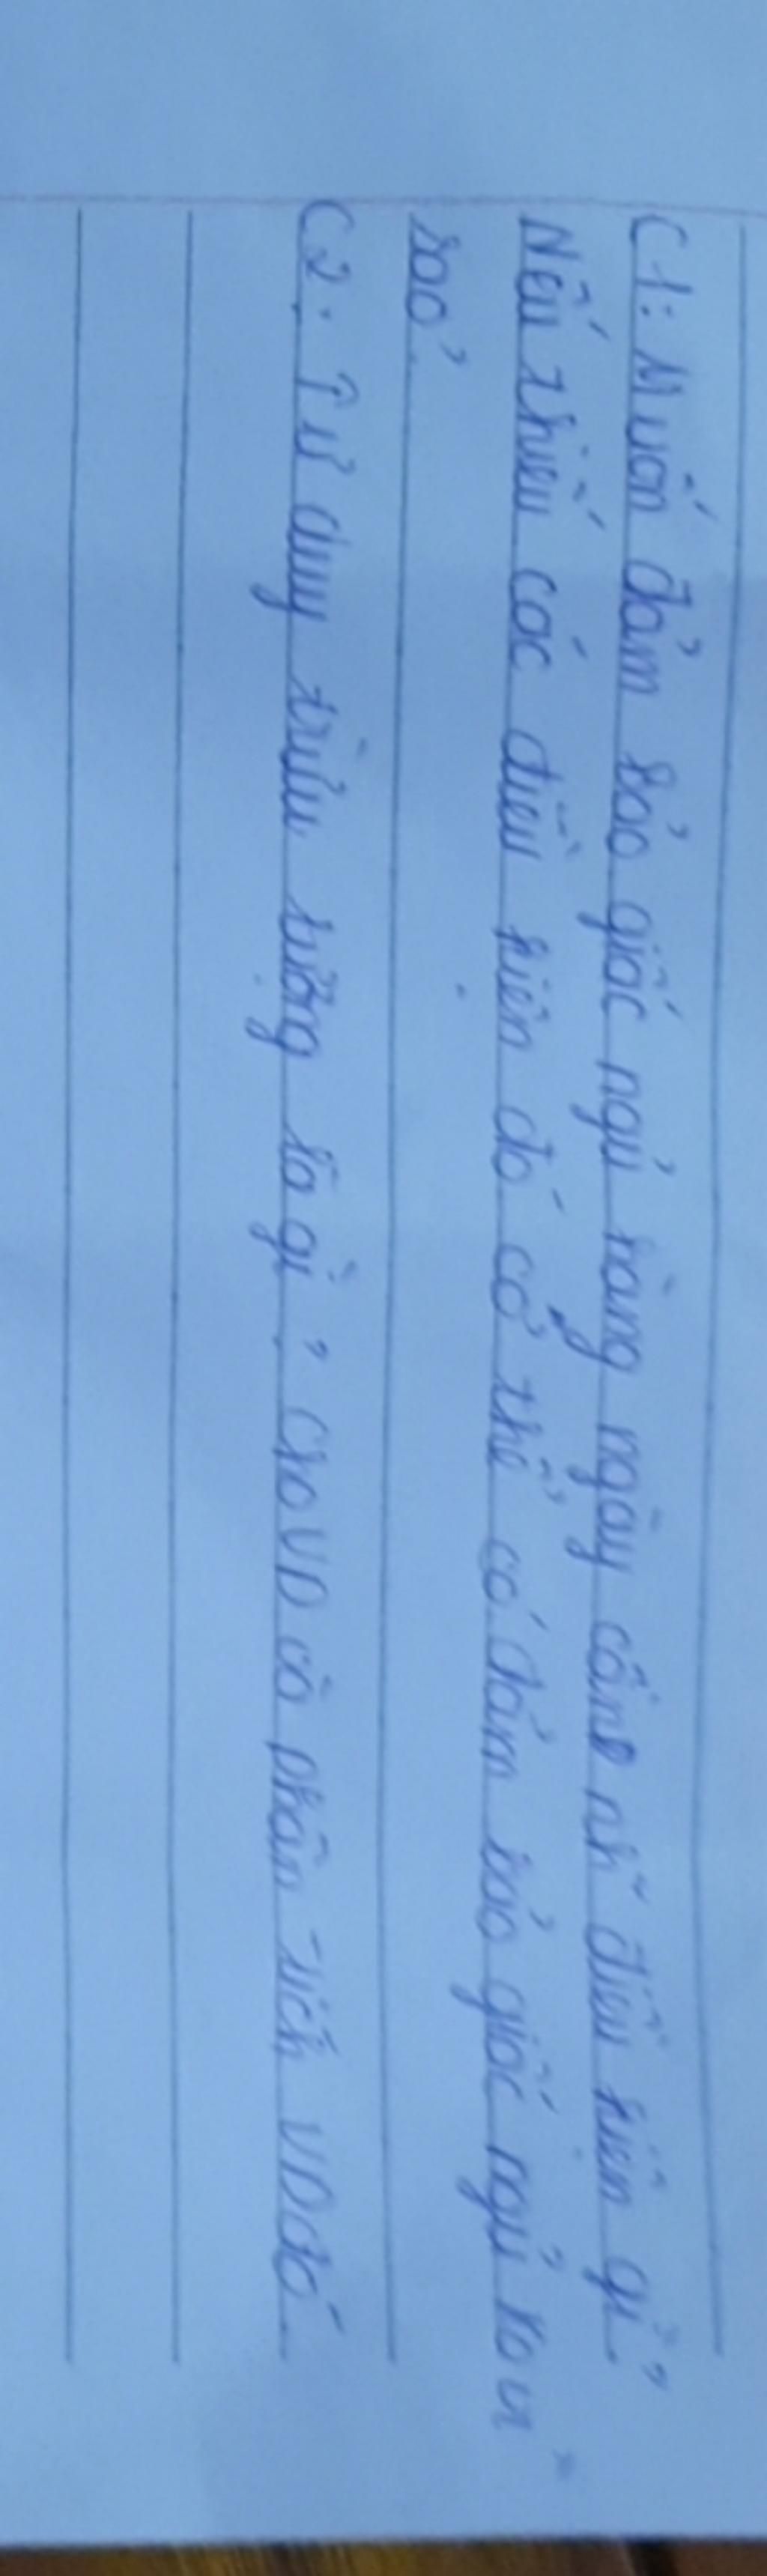 C1: Muốn đảm bảo giấc ngủ hàng ngày cần những điều kiện gì?
Nếu thiếu các điều kiện đó có thể có đảm bảo giấc ngủ ko
sao?
C2: Tư duy trừu tượng là gì? Cho VD và phân tích VD đó.